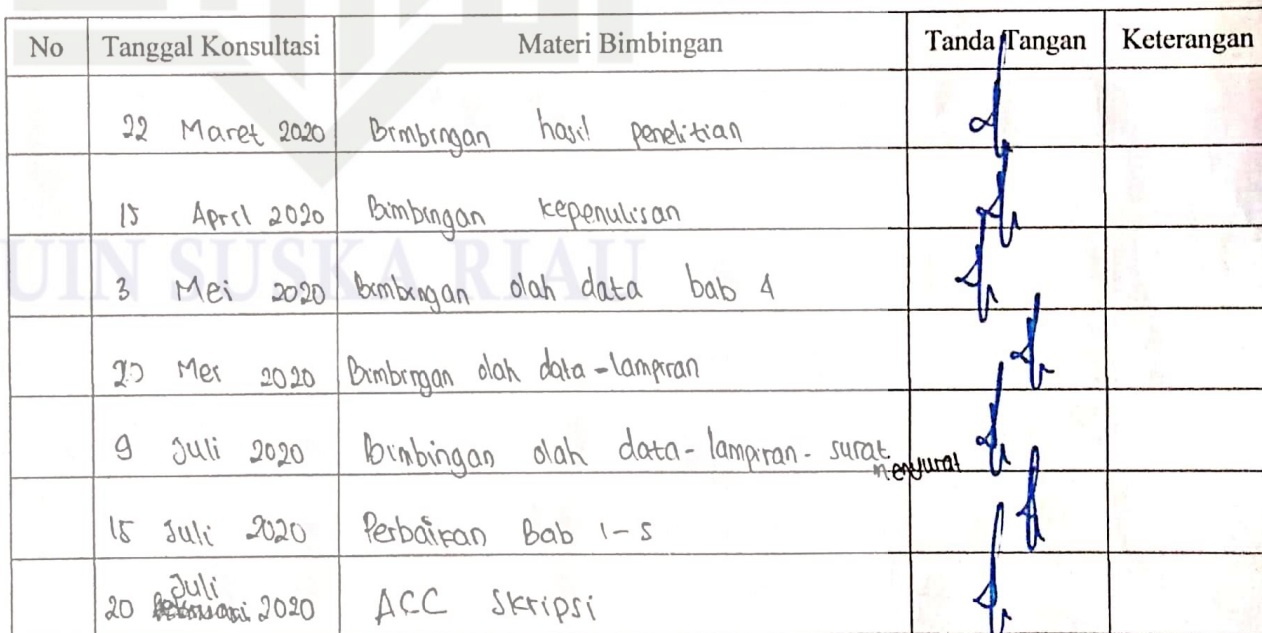 No Tanggal Konsultasi Materi Bimbingan Tanda Tangan Keterangan
22 Maret 2020 Bimbingan hasil penelitian
15 April 2020 Bimbingan kepenulisan
UIN SUSKA RIAU
3 Mei 2020 Bimbingan olah data bab 4
Mei 2020 Bimbingan olah data - lampiran
9 Juli 2020 Bimbingan olah data - lampiran - surat
menyurat
15 Juli 2020 Perbaikan Bab 1-5
Juli
20 2020 ACC Skripsi